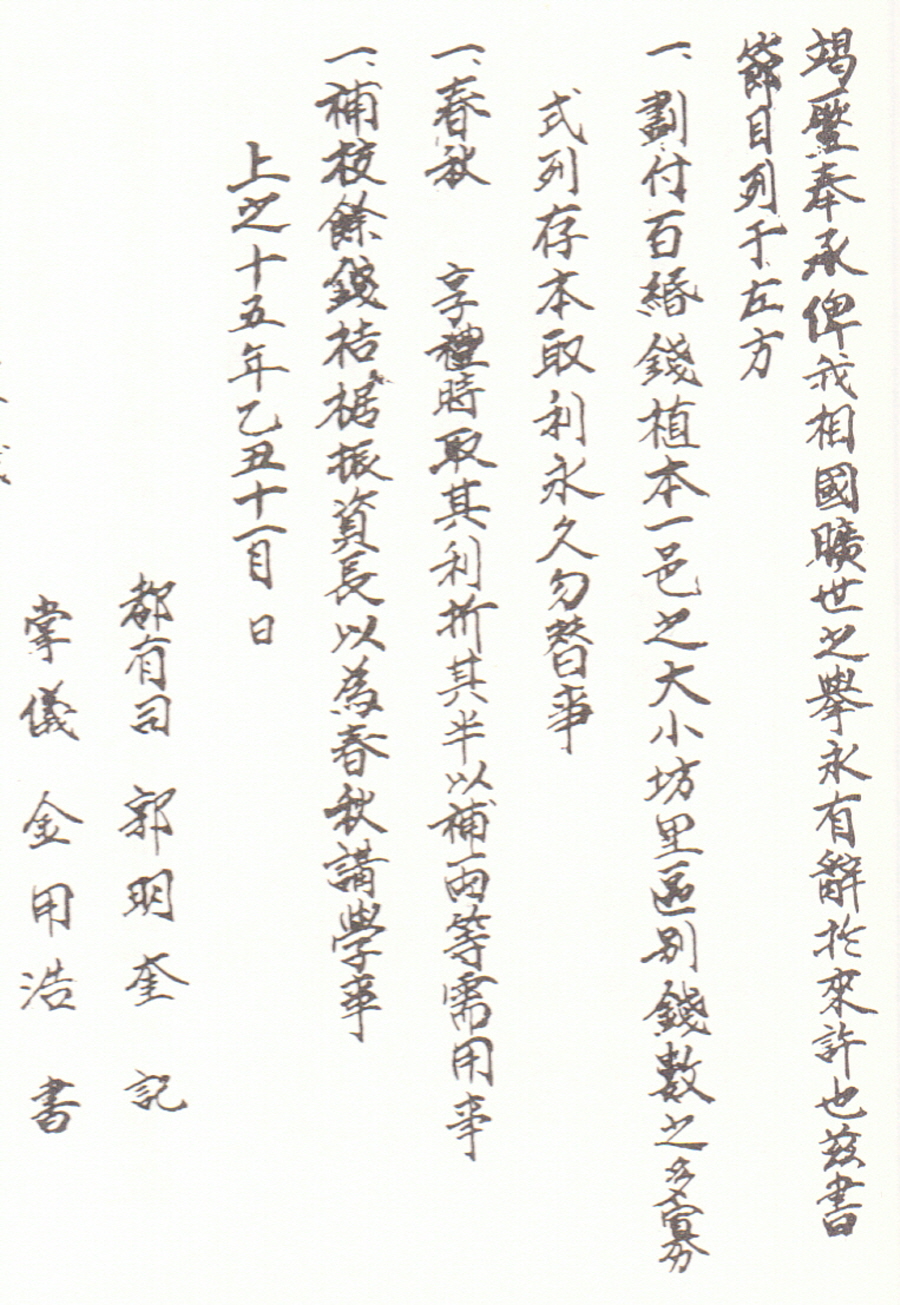 竭蹷奉承俾我相國曠世之擧永有辭於來許也玆書
節目列于左方
一 劃付百緡錢植本一邑之大小坊里區別錢數之多寡分
式列存本取利永久勿替事
一 春秋 享禮時取其利折其半以補両等需用事
一 補校餘錢拮据振資長以為春秋講學事
上之十五年乙丑十一月 日
都有司 郭明奎 記
掌儀 金用浩 書